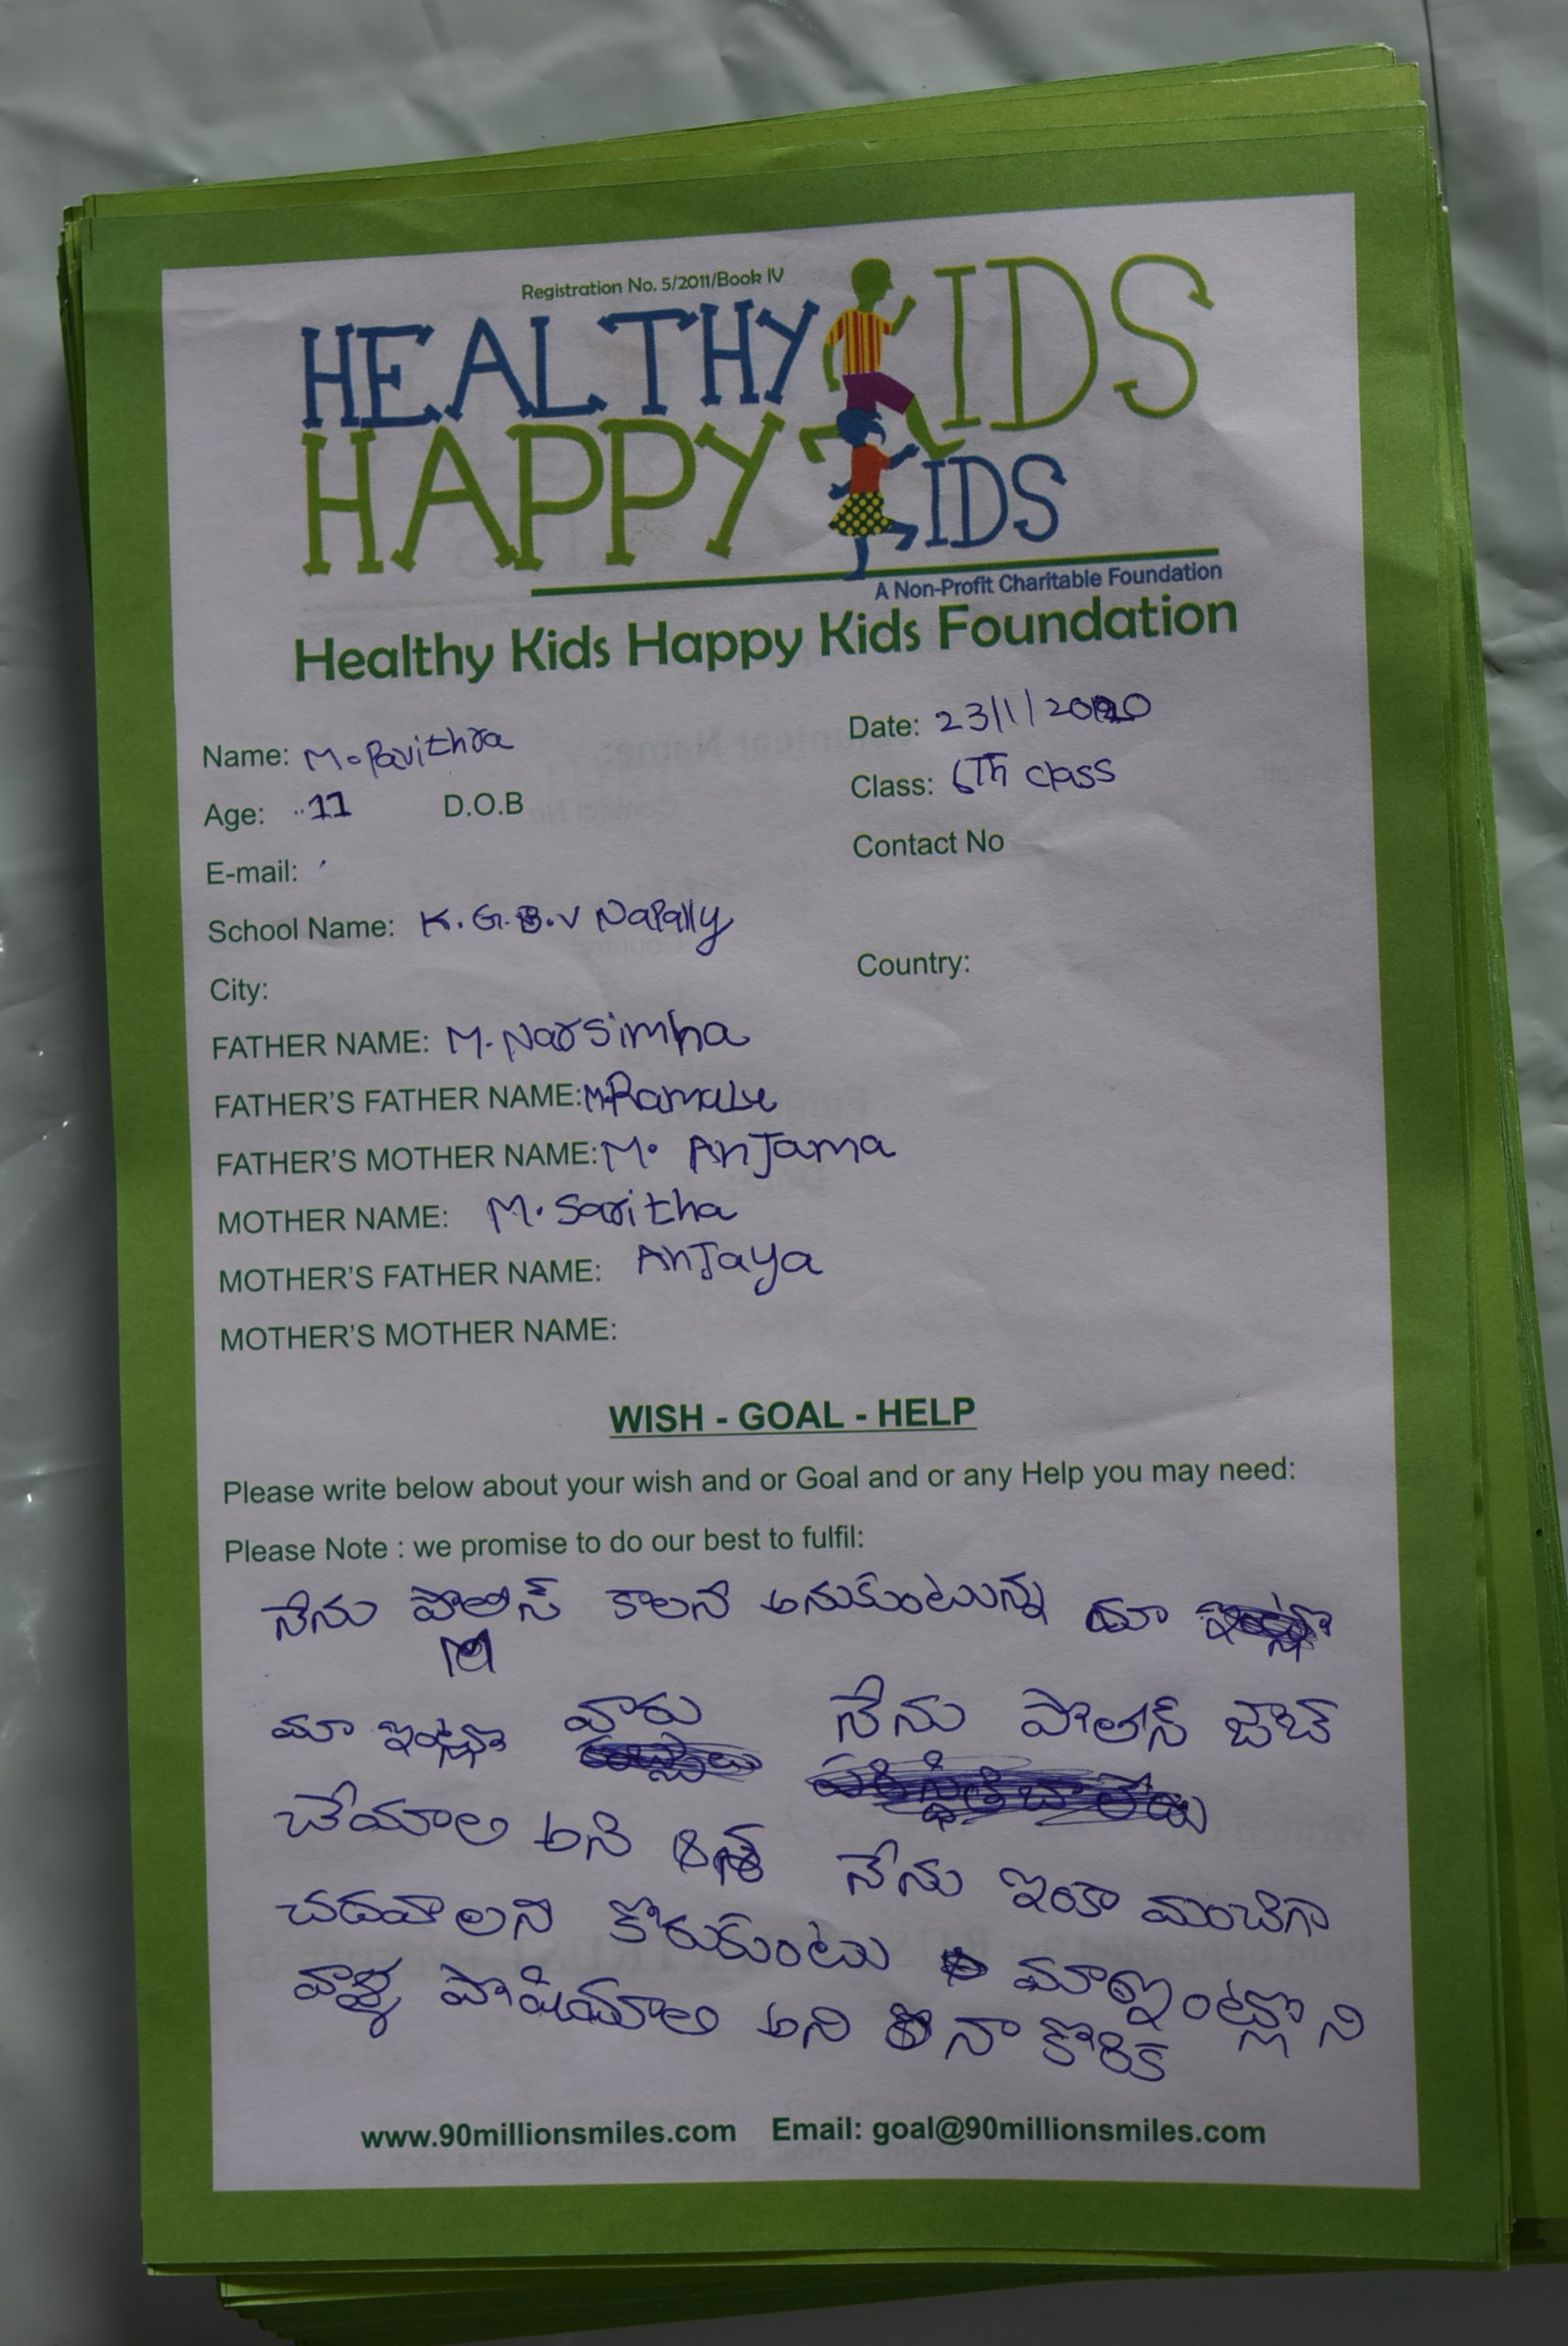 Registration No. 5/2011/Book IV
HEALTHY KIDS
HAPPY KIDS
A Non-Profit Charitable Foundation
Healthy Kids Happy Kids Foundation
Name: M. Pavithra Date: 23/1/2020
Age: 11 D.O.B Class: 6Th class
E-mail: Contact No
School Name: K.G.B.V Napally
City: Country:
FATHER NAME: M. Narsimha
FATHER'S FATHER NAME: M. Ramalu
FATHER'S MOTHER NAME: M. AnJama
MOTHER NAME: M. Saritha
MOTHER'S FATHER NAME: AnJaya
MOTHER'S MOTHER NAME:
WISH - GOAL - HELP
Please write below about your wish and or Goal and or any Help you may need:
Please Note : we promise to do our best to fulfil:
నేను పొలిస్ కాలనే అనుకుంటున్న మా
మా ఇంట్లొ వారు నేను పొలిస్ జాబ్
చేయాల అని నేను ఇంకా మంచిగా
చదవాలని కొరుకుంటు మా ఇంట్లొ ని
వాళ్ళ పొషియాల అని నా కొరిక
www.90millionsmiles.com Email: goal@90millionsmiles.com